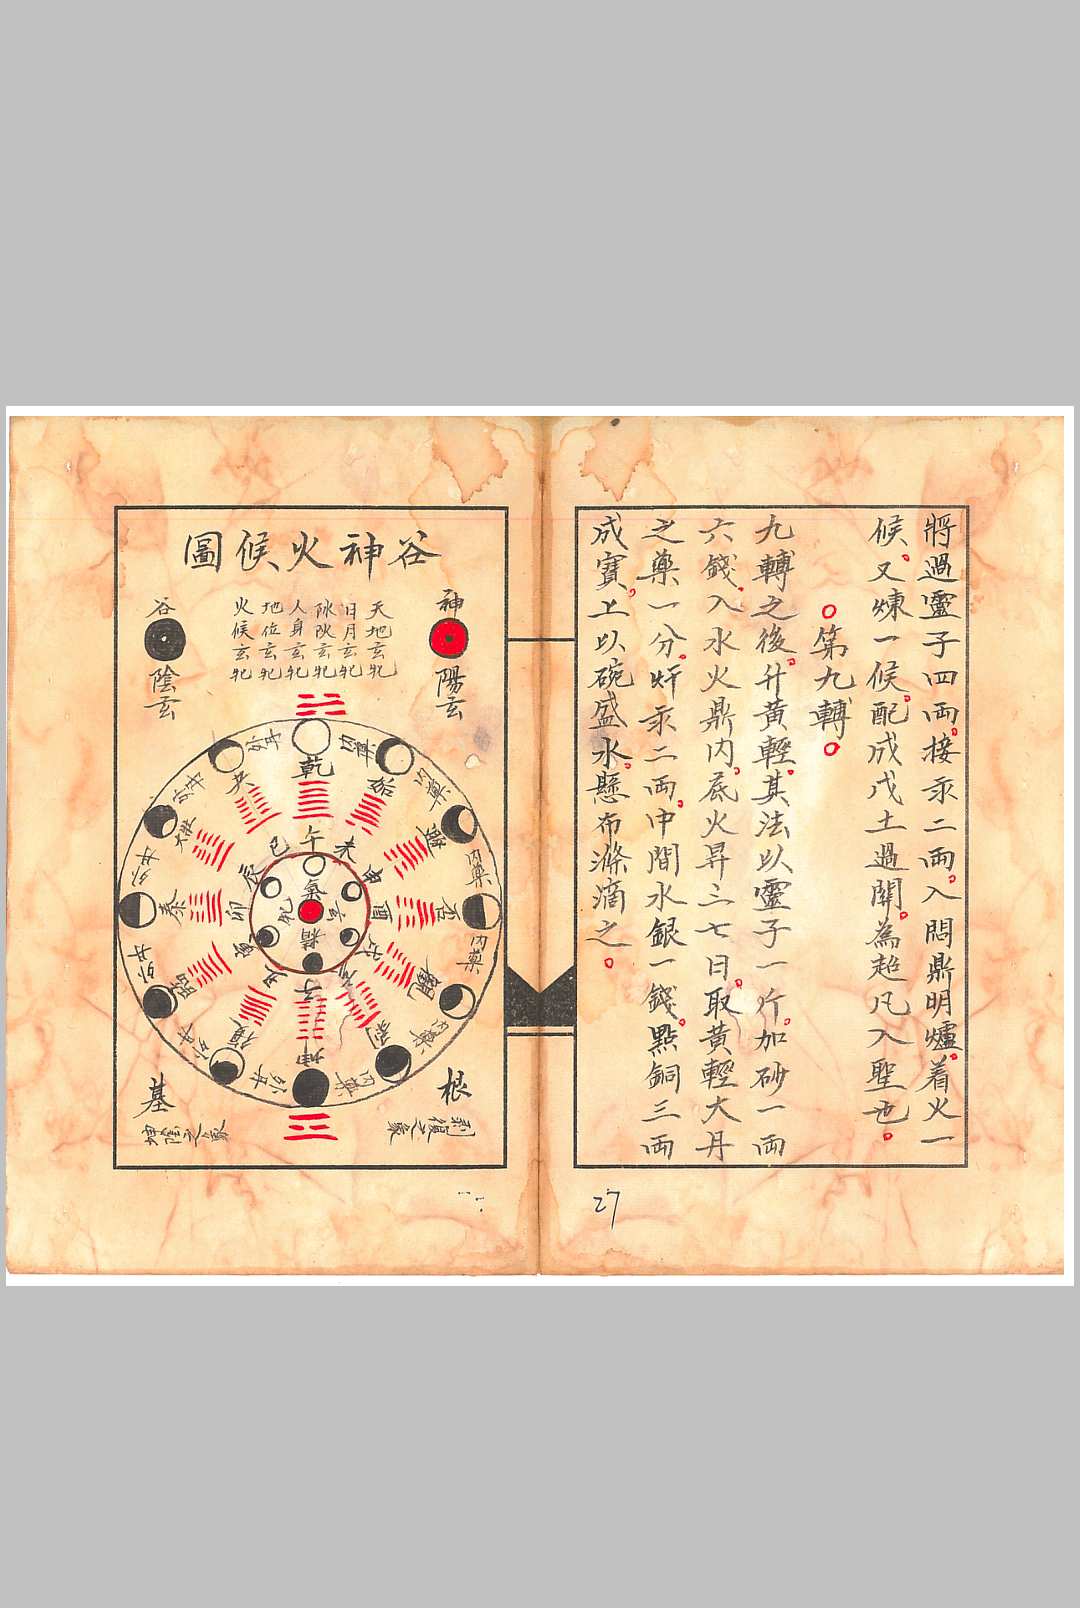 將過靈子四兩。接汞二兩。入悶鼎明爐。着火一
候。又煉一候。配成戊土過關。為超凡入聖也。
○第九轉○
九轉之後。升黃輕。其法以靈子一斤。加砂一兩
六錢。入水火鼎內。底火昇三七日。取黃輕大丹
之藥一分。奸汞二兩。中間水銀一錢。點銅三兩
成寶。上以碗盛水。懸布滌滴之。
27
谷神火候圖
神
陽玄
天地玄牝
日月玄牝
人身玄牝
地位玄牝
火候玄牝
谷
陰玄
乾
姤
否
觀
剝
復
臨
泰
夬
午
未
申
酉
戌
子
寅
卯
辰
巳
氣
精
玄
牝
內藥
內藥
內藥
內藥
根
剝復之象
基
坤陰之象